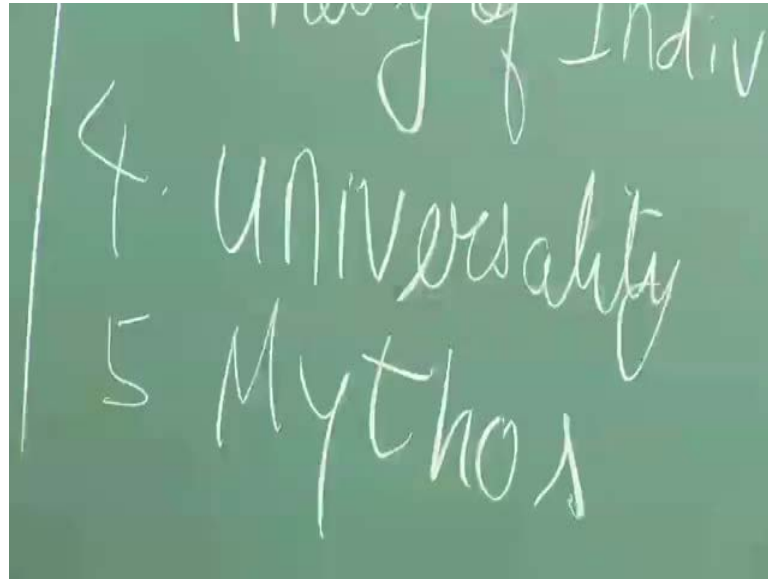 Theory of Indiv
4. Universality
5 Mythos